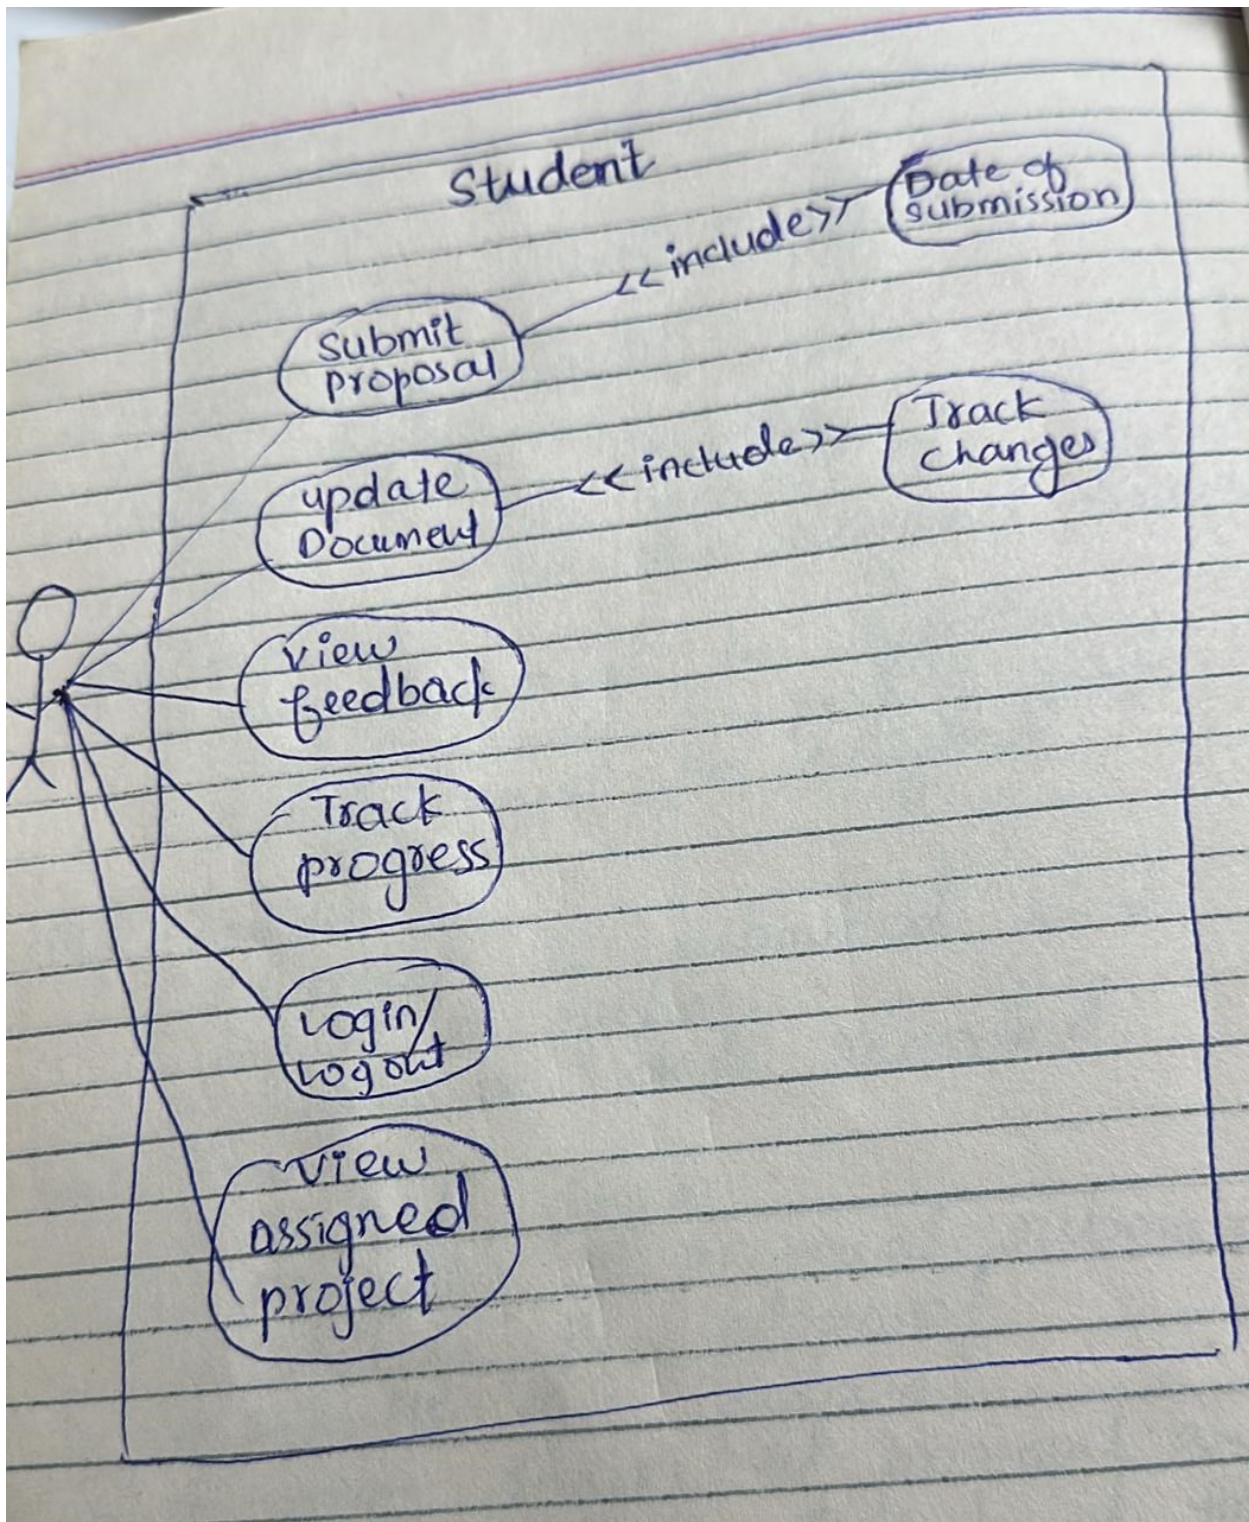 Student
Date of
submission
<<include>>
Submit
proposal
Track
changes
<<include>>
update
Document
view
feedback
Track
progress
Login/
Logout
view
assigned
project